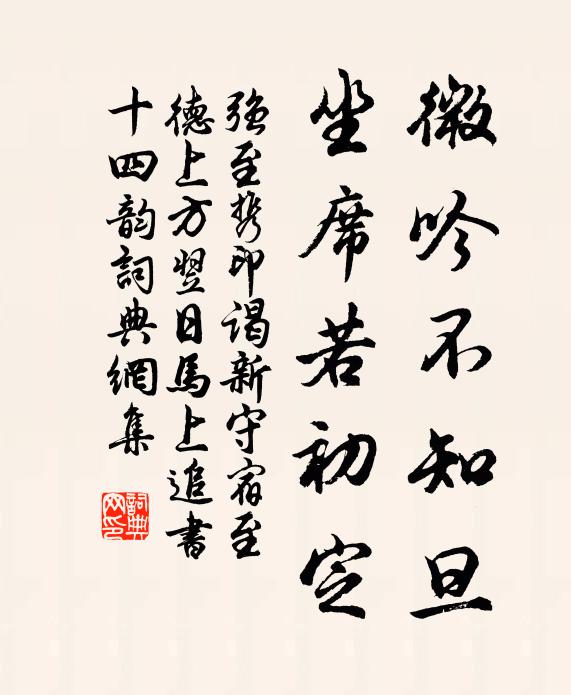 微吟不知旦
坐席若初定
强至携印谒新守宿至
德上方翌日馬上追書
十四韵詞典網集
詞典
网印